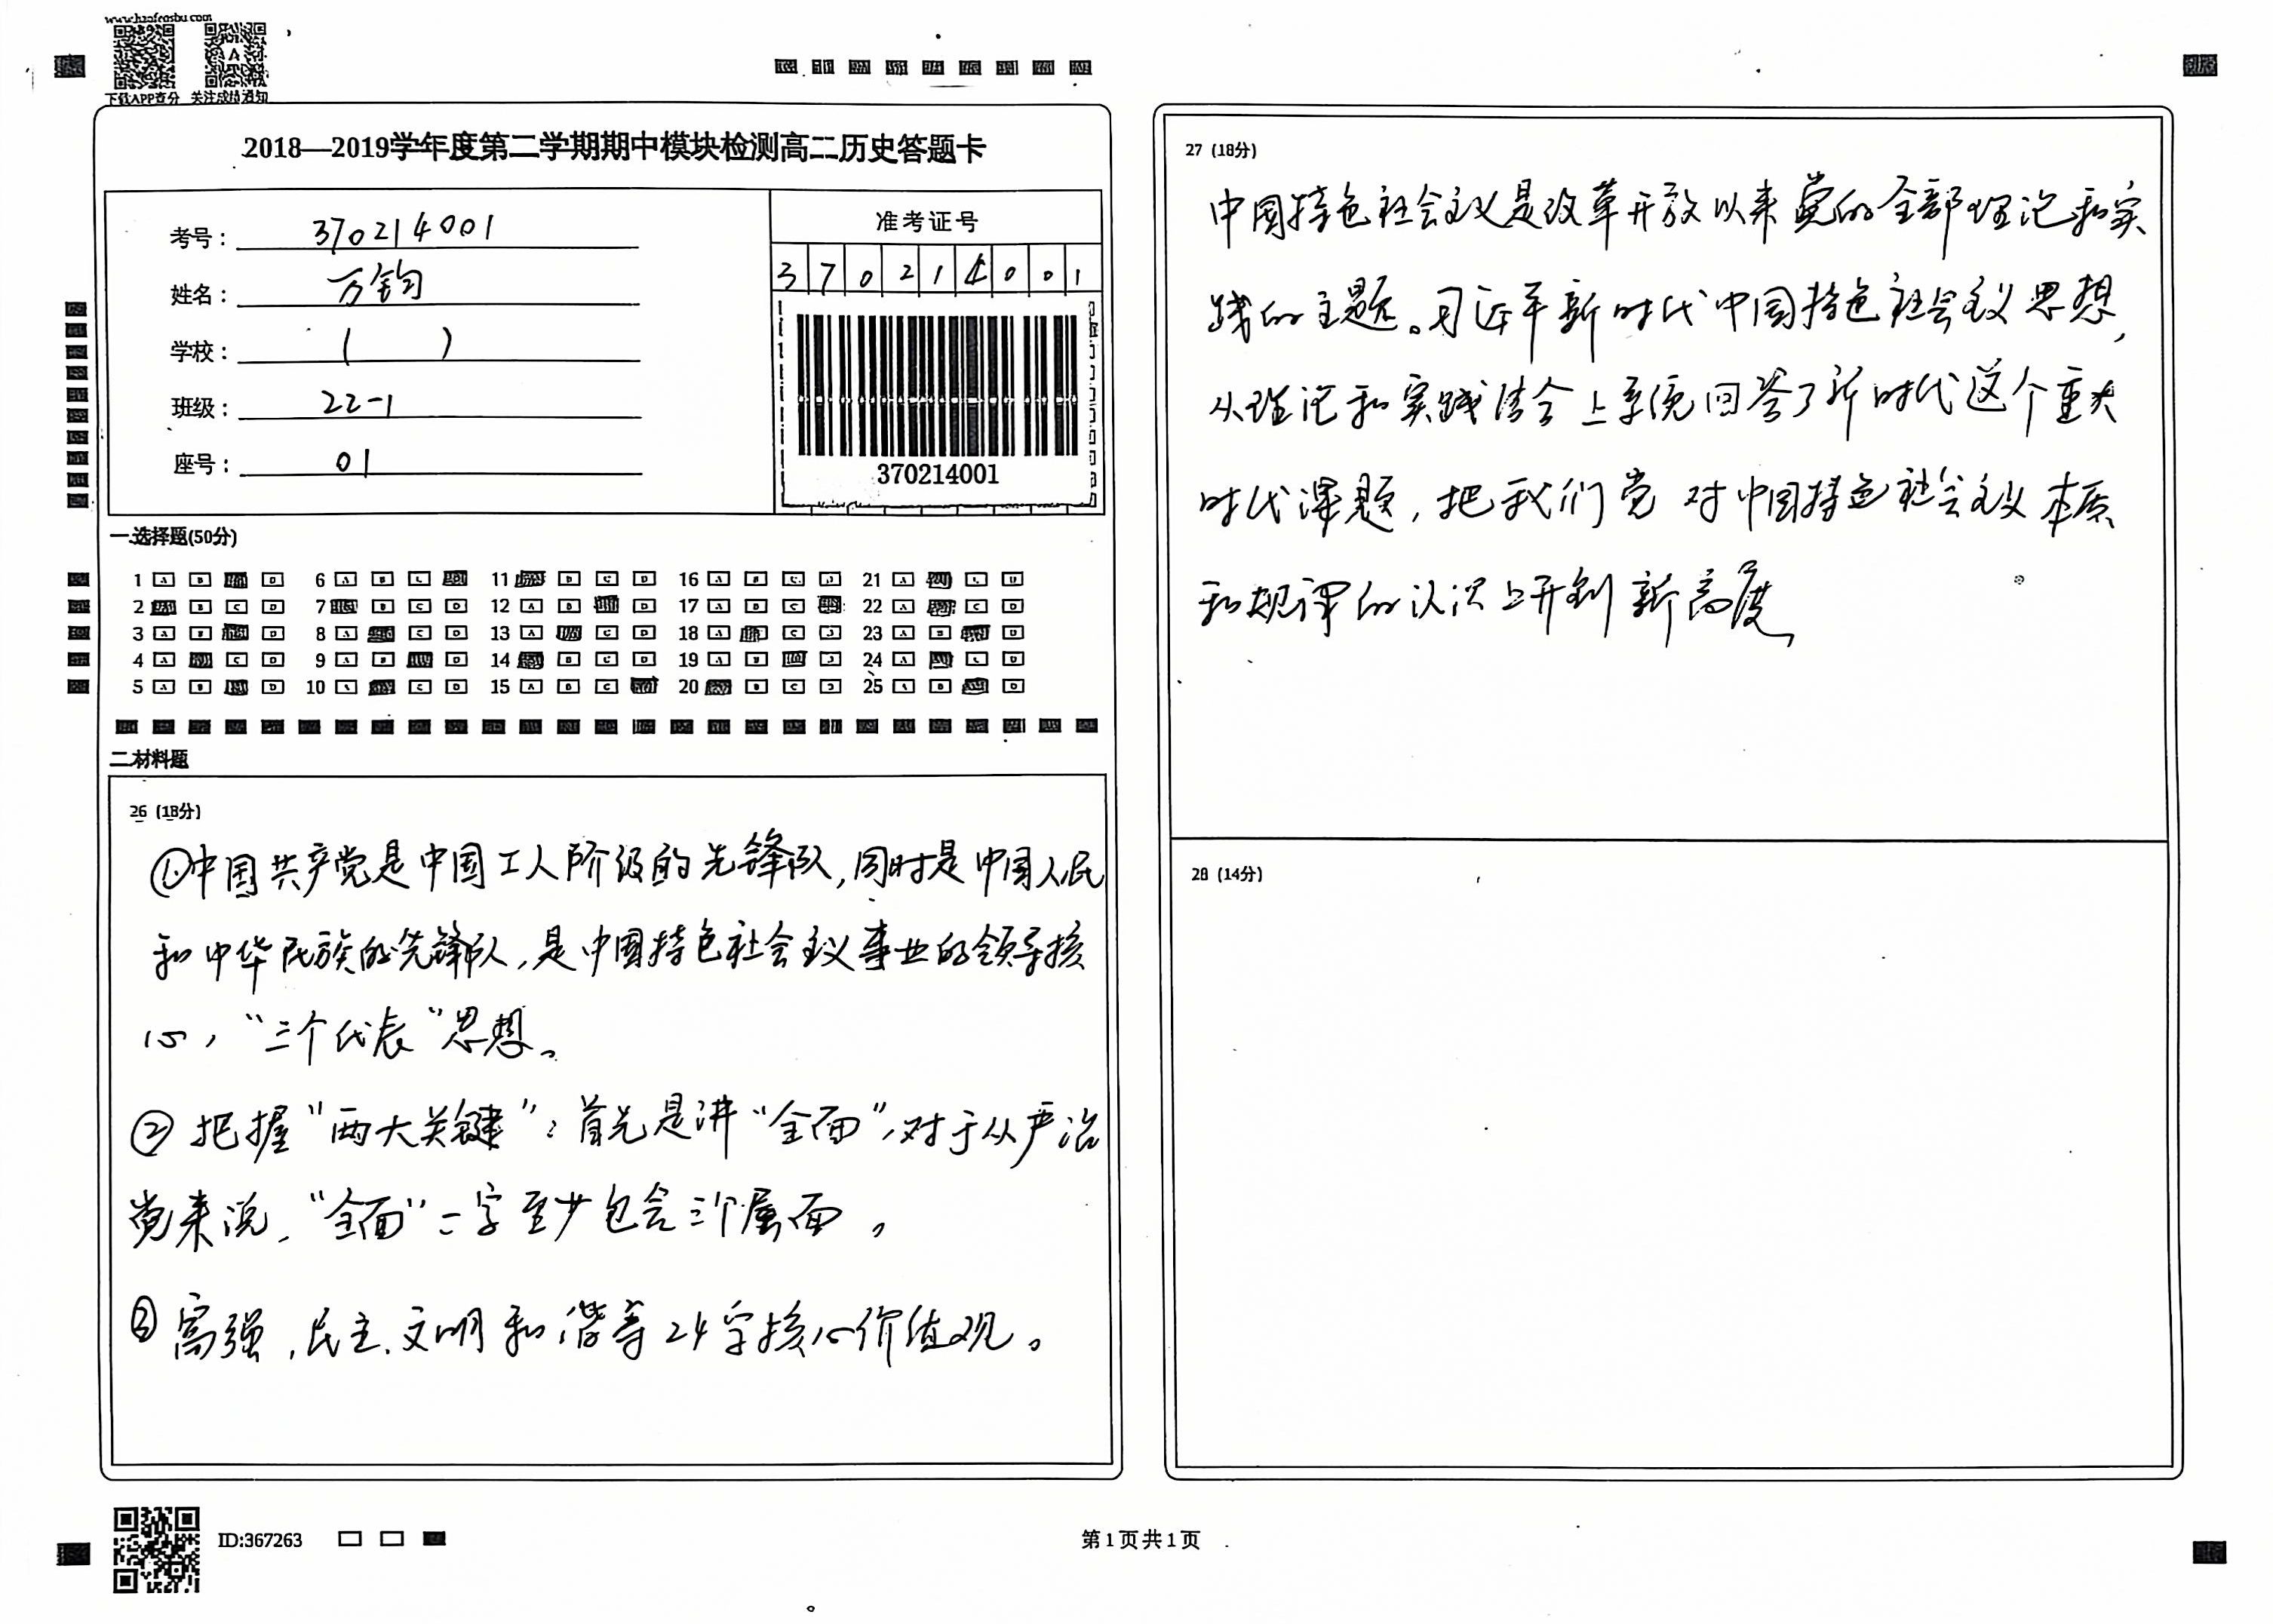 www.haofenshu.com
下载APP查分 关注成绩通知
2018—2019学年度第二学期期中模块检测高二历史答题卡
考号： 370214001
姓名： 万钧
学校： （ ）
班级： 22-1
座号： 01
准考证号
3 7 0 2 1 4 0 0 1
370214001
一.选择题(50分)
1 A B D 6 A B C 11 B C D 16 A B C D 21 A C D
2 B C D 7 B C D 12 A B D 17 A B C 22 A C D
3 A B D 8 A C D 13 A C D 18 A C D 23 A B D
4 A C D 9 A B D 14 B C D 19 A B D 24 A C D
5 A B D 10 A C D 15 A B C 20 B C D 25 A B D
二.材料题
26 (18分)
①中国共产党是中国工人阶级的先锋队,同时是中国人民
和中华民族的先锋队,是中国特色社会主义事业的领导核
心,“三个代表”思想。
② 把握“两大关键”:首先是讲“全面”,对于从严治
党来说,“全面”二字至少包含三个层面。
③ 富强、民主、文明和谐等24字核心价值观。
27 (18分)
中国特色社会主义是改革开放以来党的全部理论和实
践的主题。习近平新时代中国特色社会主义思想,
从理论和实践结合上系统回答了新时代这个重大
时代课题,把我们党对中国特色社会主义本质
和规律的认识上升到新高度
28 (14分)
ID:367263
第1页共1页